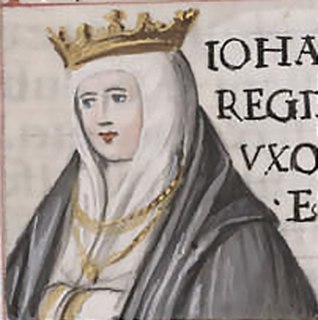 IOHA
REGI
VXO
·E